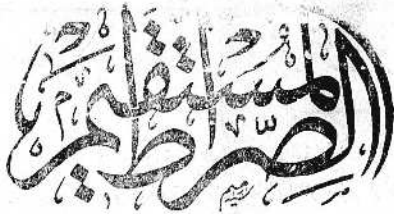 الصِّراط المُستقيم